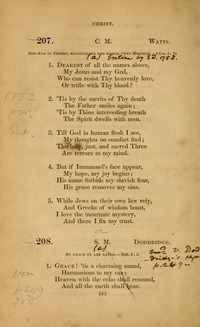 CHRIST.
207. C. M. WATTS.
GOD WAS IN CHRIST, RECONCILING THE WORLD UNTO HIMSELF.—2 Cor. 5: 19.
1. DEAREST of all the names above,
My Jesus and my God,
Who can resist Thy heavenly love,
Or trifle with Thy blood?
2. 'Tis by the merits of Thy death
The Father smiles again;
'Tis by Thine interceding breath
The Spirit dwells with men.
3. Till God in human flesh I see,
My thoughts no comfort find;
The holy, just, and sacred Three
Are terrors to my mind.
4. But if Immanuel's face appear,
My hope, my joy begins;
His name forbids my slavish fear,
His grace removes my sins.
5. While Jews on their own law rely,
And Greeks of wisdom boast,
I love the incarnate mystery,
And there I fix my trust.
208. S. M. DODDRIDGE.
BY GRACE YE ARE SAVED.—Eph. 2: 5.
1. GRACE! 'tis a charming sound,
Harmonious to my ear;
Heaven with the echo shall resound,
And all the earth shall hear.
152